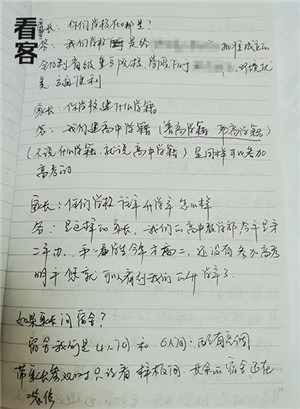 看客
家长：你们学校在哪里？
答：我们学校
是 便利
家长：你学校是什么学籍
答：我们是高中学籍（普高学籍 职高学籍）
（不说什么学籍，就说高中学籍）是同样可以参加
高考的
家长：你们学校 升学率怎么样
答：是这样的家长，我们的高中教学部今年是第
二年办，第一届学生今年才高二，还没有参加高考
明年您就可以看到我们的升学率了
如果家长问宿舍？
宿舍我们是4人间和6人间：都有空调
带家长参观时只设看样板间，其余的宿舍还在
装修